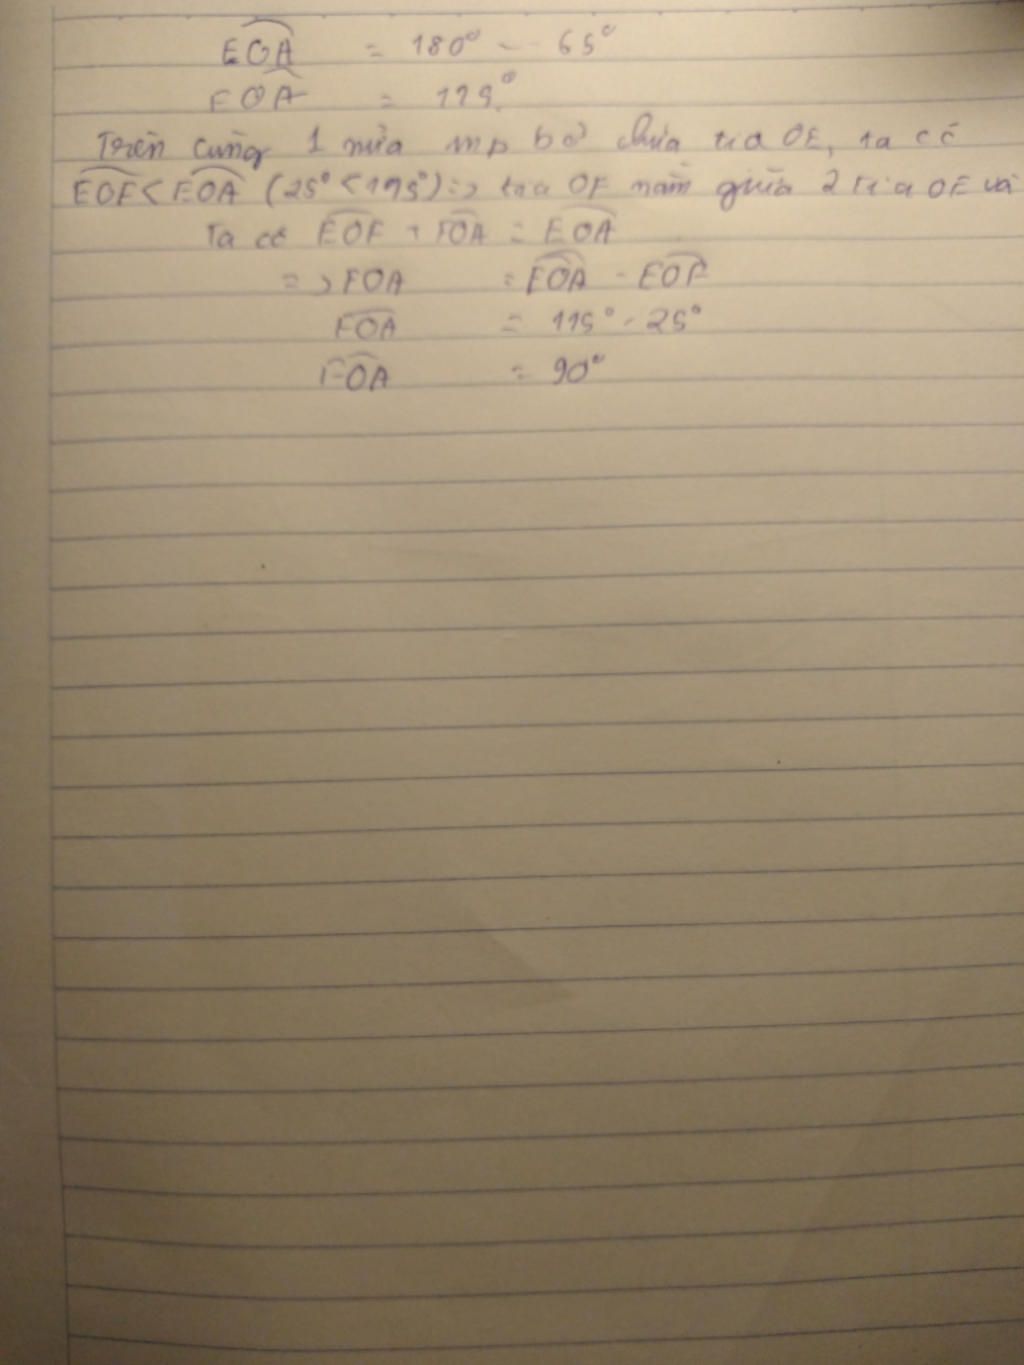 EOA = 180° - 65°
EOA = 115°
Trên cùng 1 nửa mp bờ chứa tia OE, ta có
EOF < EOA (25° < 115°) => tia OF nằm giữa 2 tia OE và
Ta có EOF + FOA = EOA
=> FOA = EOA - EOF
FOA = 115° - 25°
FOA = 90°